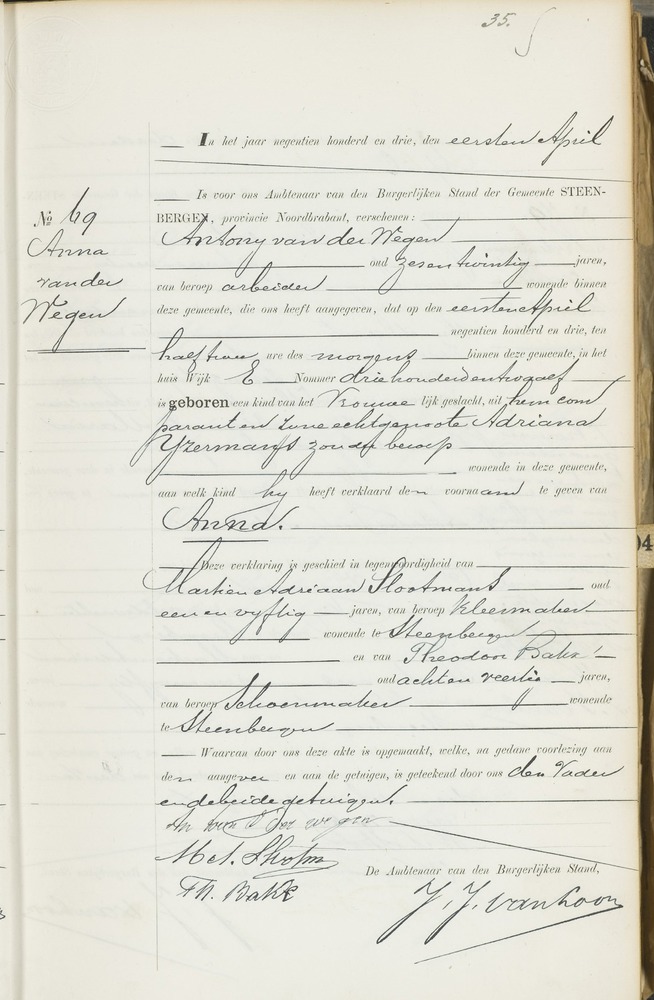 35.
In het jaar negentien honderd en drie, den eersten April
Is voor ons Ambtenaar van den Burgerlijken Stand der Gemeente STEEN-
No 69
BERGEN, provincie Noordbrabant, verschenen:
Anna
van der
Wegen
Antony van der Wegen
oud zesentwintig jaren,
van beroep arbeider wonende binnen
deze gemeente, die ons heeft aangegeven, dat op den eersten April
negentien honderd en drie, ten
half twee ure des morgens binnen deze gemeente, in het
huis Wijk E Nommer driehonderdentwaalf
is geboren een kind van het Vrouwelijk geslacht, uit hem com
parant en zyne echtgenoote Adriana
Yzermans zonder beroep
wonende in deze gemeente,
aan welk kind hy heeft verklaard den voornaam te geven van
Anna.
Deze verklaring is geschied in tegenwoordigheid van
Martien Adriaan Slootmans oud
eenenvyftig jaren, van beroep kleermaker
wonende te Steenbergen
en van Theodoor Bakx
oud achtenveertig jaren,
van beroep Schoenmaker wonende
te Steenbergen
Waarvan door ons deze akte is opgemaakt, welke, na gedane voorlezing aan
den aangever en aan de getuigen, is geteekend door ons den Vader
en de beide getuigen.
An van der wegen
De Ambtenaar van den Burgerlijken Stand,
Th. Bakx
J. J. van Loon